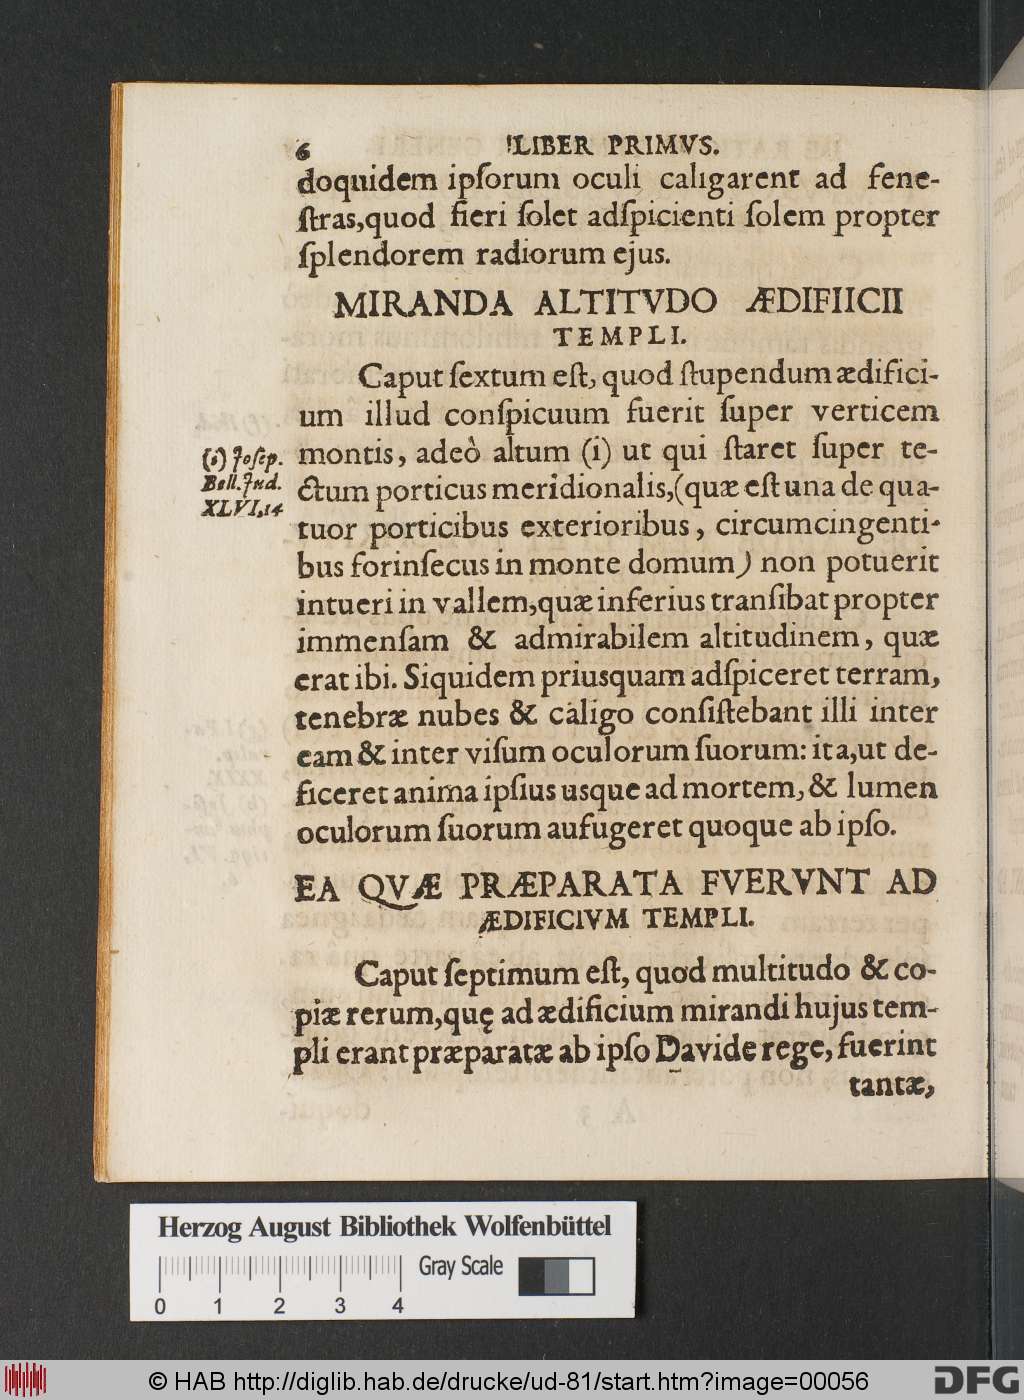 6 LIBER PRIMVS.
doquidem ipſorum oculi caligarent ad fene-
ſtras,quod fieri ſolet adſpicienti ſolem propter
ſplendorem radiorum ejus.
MIRANDA ALTITVDO ÆDIFIICII
TEMPLI.
Caput ſextum eſt, quod ſtupendum ædifici-
um illud conſpicuum fuerit ſuper verticem
montis, adeò altum (i) ut qui ſtaret ſuper te-
ctum porticus meridionalis,(quæ eſt una de qua-
tuor porticibus exterioribus, circumcingenti-
bus forinſecus in monte domum) non potuerit
intueri in vallem,quæ inferius tranſibat propter
immenſam & admirabilem altitudinem, quæ
erat ibi. Siquidem priusquam adſpiceret terram,
tenebræ nubes & caligo conſiſtebant illi inter
eam & inter viſum oculorum ſuorum: ita,ut de-
ficeret anima ipſius usque ad mortem, & lumen
oculorum ſuorum aufugeret quoque ab ipſo.
(i) Joſep.
Bell. Jud.
XLVI,14
EA QVÆ PRÆPARATA FVERVNT AD
ÆDIFICIVM TEMPLI.
Caput ſeptimum eſt, quod multitudo & co-
piæ rerum,quę ad ædificium mirandi hujus tem-
pli erant præparatæ ab ipſo Davide rege, fuerint
tantæ,
Herzog August Bibliothek Wolfenbüttel
Gray Scale
0 1 2 3 4
© HAB http://diglib.hab.de/drucke/ud-81/start.htm?image=00056
DFG